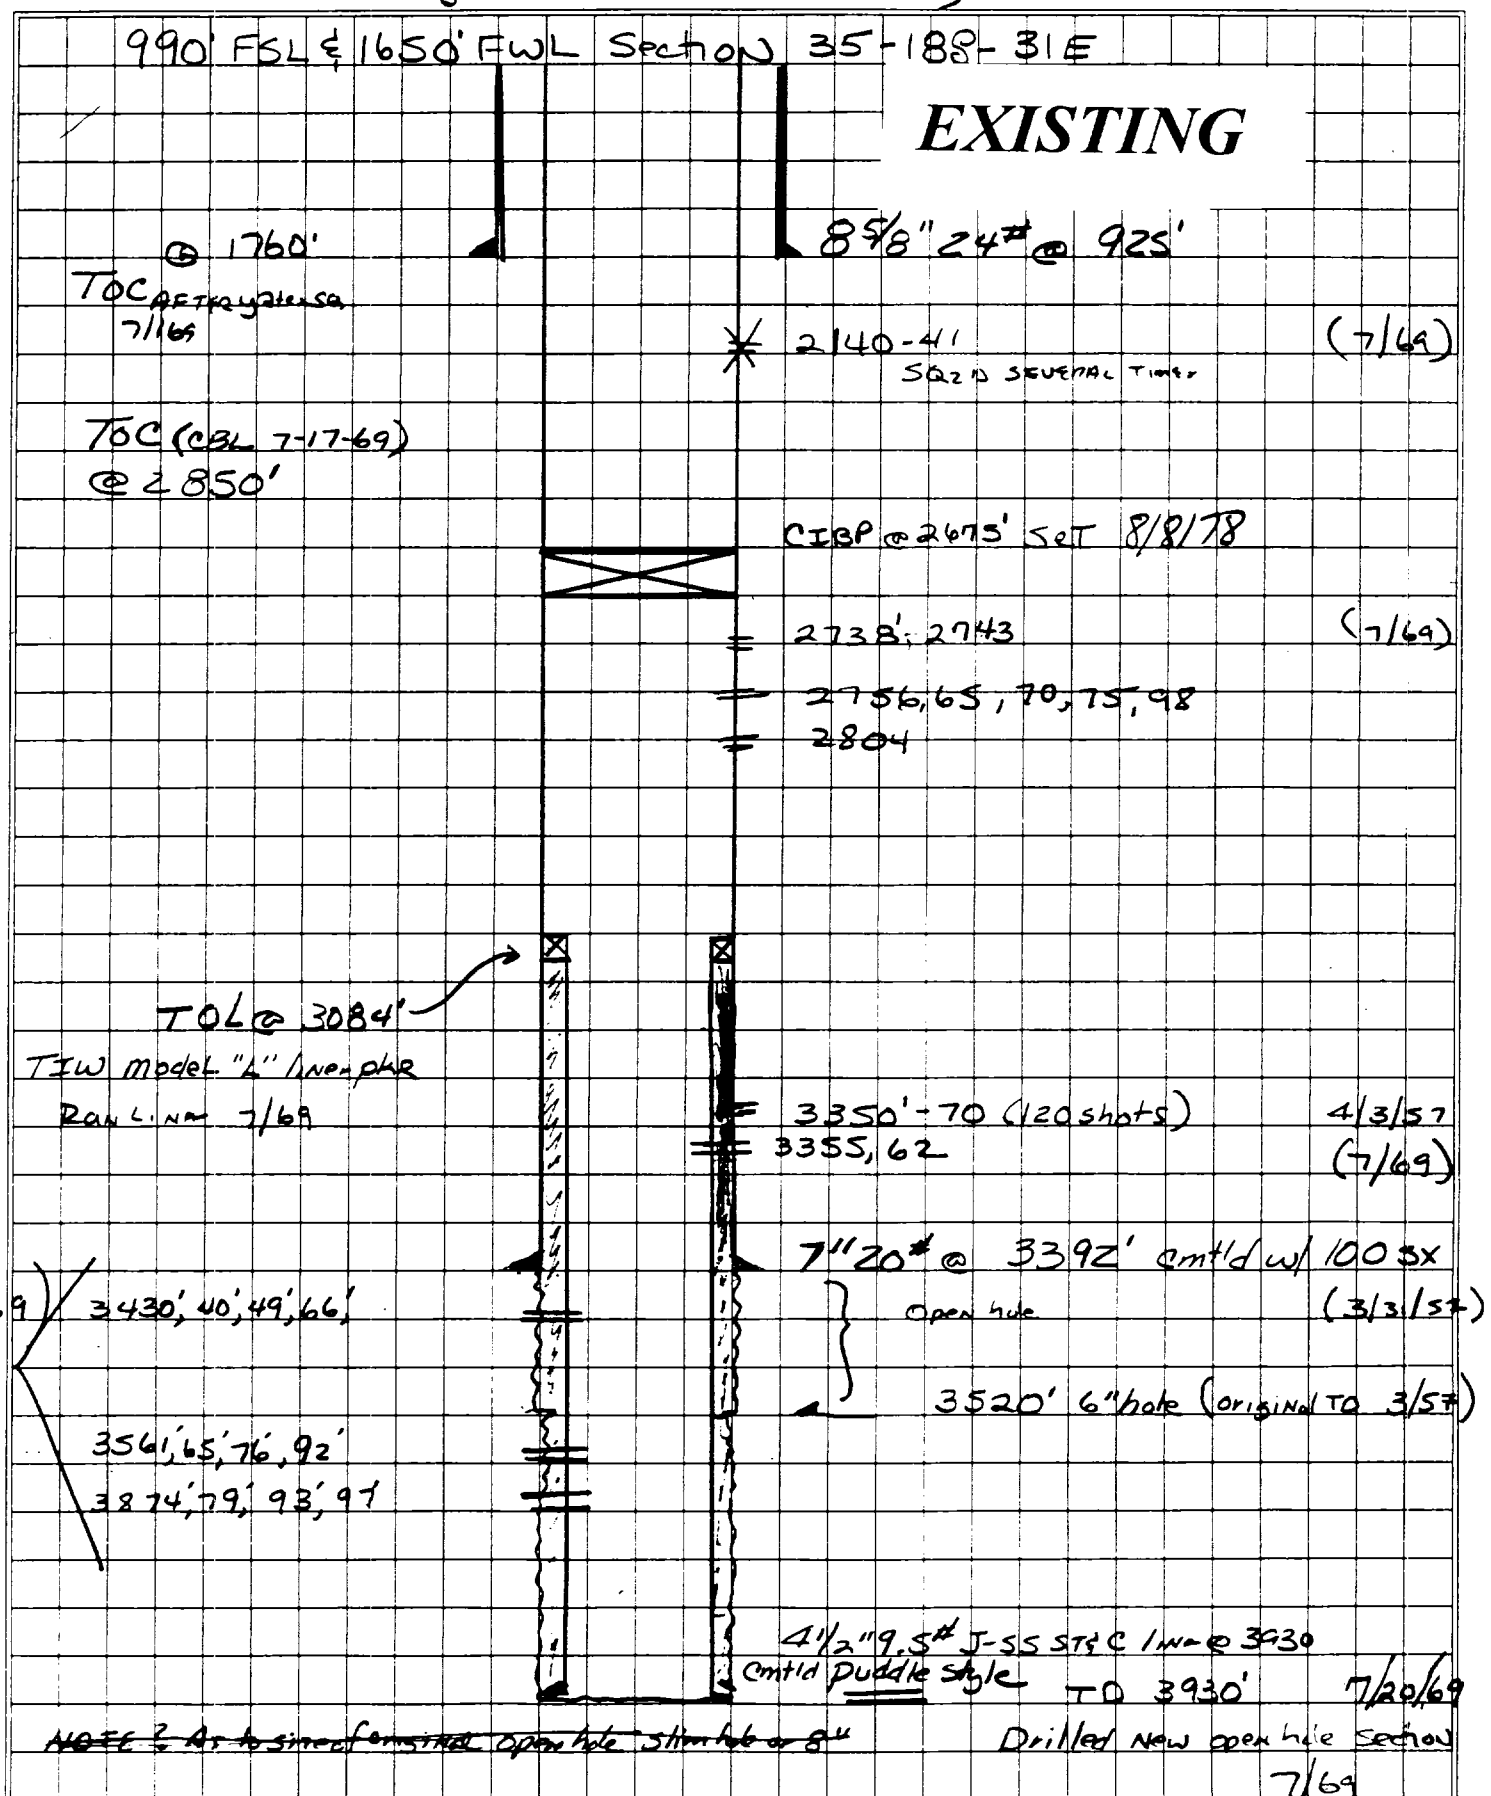 990' FSL & 1650' FWL Section 35-18S-31E
EXISTING
@ 1760'
8 5/8" 24# @ 925'
TOC AFTER
7/169
2140-41 (7/69)
SQZ'D SEVERAL Times
TOC (CBL 7-17-69)
@ 2850'
CIBP @ 2675' SET 8/8/78
2738', 2743 (7/69)
2756, 65, 70, 75, 98
2804
TOL @ 3084'
TIW model "L" liner pkr
Ran Liner 7/69
3350'-70 (120 shots) 4/3/57
3355, 62 (7/69)
7" 20# @ 3392' cmt'd w/ 100 sx
9) 3430', 40', 49', 66'
Open hole (3/31/57)
3520' 6" hole (original TD 3/57)
3561', 65', 76', 92'
3874', 79', 93', 97
4 1/2" 9.5# J-55 ST&C liner @ 3930
Cmt'd Puddle style
TD 3930' 7/20/69
NOTE ? As to size of original open hole slim hole or 8"
Drilled New open hole section
7/69